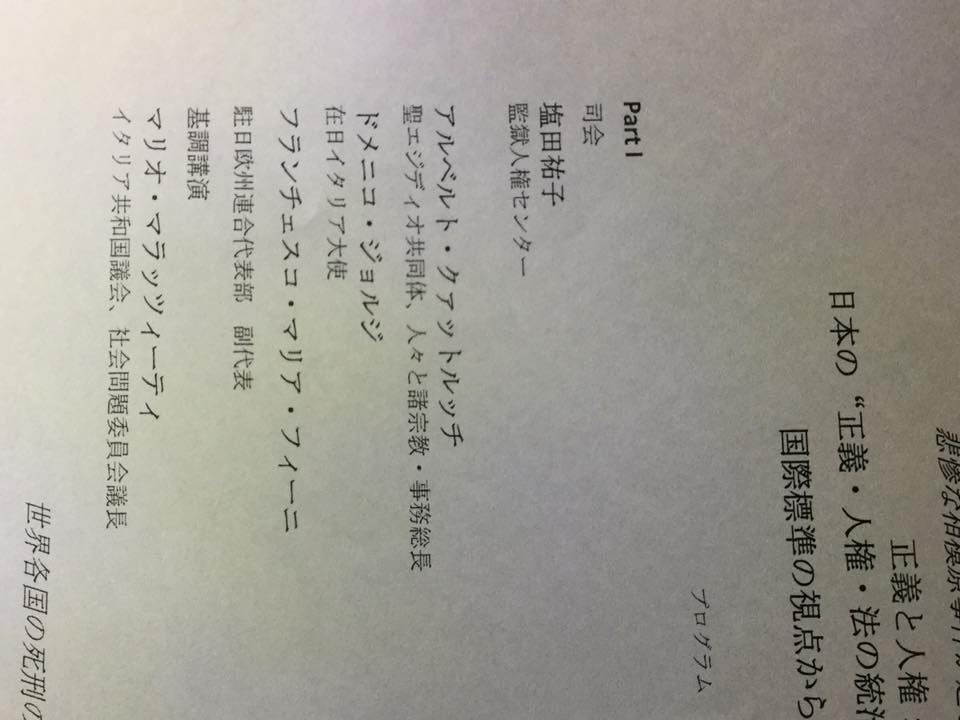 悲惨な相模原事件が
正義と人権
日本の“正義・人権・法の統治
国際標準の視点から
プログラム
Part I
司会
塩田祐子
監獄人権センター
アルベルト・クァットルッチ
聖エジディオ共同体、人々と諸宗教・事務総長
ドメニコ・ジョルジ
在日イタリア大使
フランチェスコ・マリア・フィーニ
駐日欧州連合代表部 副代表
基調講演
マリオ・マラッツィーティ
イタリア共和国議会、社会問題委員会議長
世界各国の死刑の